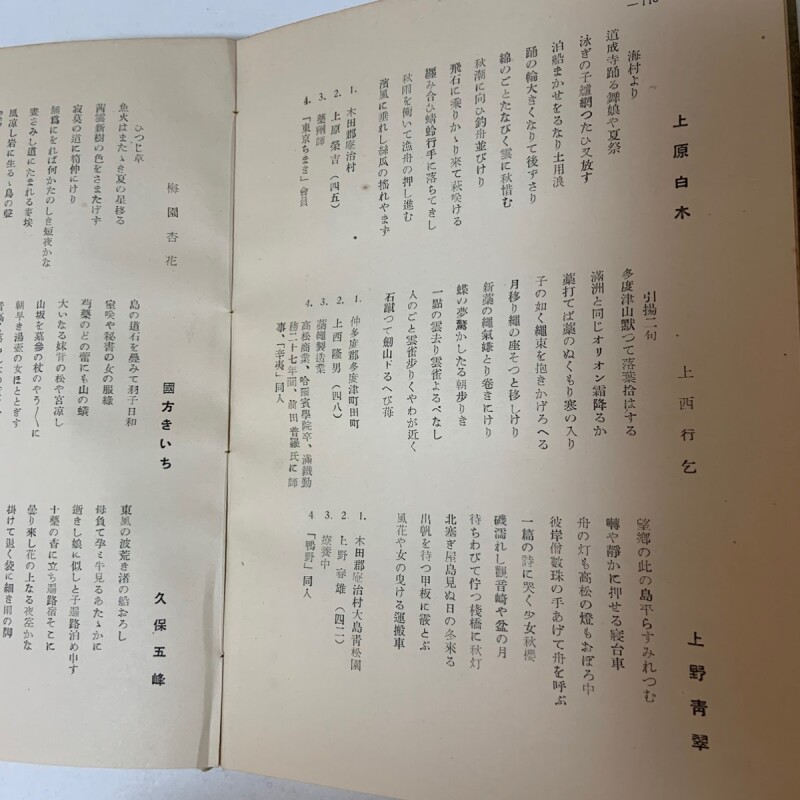 上原白木
海村より
道成寺踊る舞娘や夏祭
泳ぎの子爐網つたひ又放す
泊船まかせをるなり土用浪
踊の輪大きくなりて後ずさり
綿のごとたなびく雲に秋惜む
秋潮に向ひ釣舟並びけり
飛石に乗りかゝり来て萩咲ける
纒み合ひ蜻蛉行手に落ちてきし
秋雨を衝いて漁舟の押し進む
濱風に垂れし絲瓜の搖れやまず
1. 木田郡庵治村
2. 上原榮吉（四五）
3. 藥劑師
4. 「東京ちまき」會員
上西行乞
引揚二句
多度津山默つて落葉拾はする
滿洲と同じオリオン霜降るか
藁打てば藁のぬくもり寒の入り
子の如く繩束を抱きかげろへる
月移り繩の座そつと移しけり
新藁の繩氣嫌とり卷きにけり
蝶の夢驚かしたる朝歩りき
一點の雲去り雲雀よるべなし
人のごと雲雀歩りくやわが近く
石蹴つて劒山下るへび苺
1. 仲多度郡多度津町田町
2. 上西隆男（四八）
3. 藁繩製造業
4. 高松商業、哈爾賓學院卒、滿鐵勤
務二十七年間、前田普羅氏に師
事、「辛夷」同人
上野青翠
望鄕の此の島平らすみれつむ
囀や靜かに押せる寢台車
舟の灯も高松の燈もおぼろ中
彼岸僧數珠の手あげて舟を呼ぶ
一篇の詩に哭く少女秋櫻
磯濡れし觀音崎や盆の月
待ちわびて佇つ棧橋に秋灯
北塞ぎ屋島見ぬ日の冬來る
出帆を待つ甲板に霰とぶ
風花や女の曳ける運搬車
1. 木田郡庵治村大島青松園
2. 上野春雄（四二）
3. 療養中
4 「鴨野」同人
梅園杏花
ひつじ草
魚火はまたゝき夏の星移る
茜雲新樹の色をさまたげず
寂莫の道に筍伸にけり
無爲にをれば何かたのしき短夜かな
妻さみし道にたまれる麥埃
風凉し岩に生るゝ鳥の聲
國方きいち
島の道石を疊みて羽子日和
室咲や秘書の女の服線
芍藥のどの蕾にも山の蟻
大いなる妹背の松や宮凉し
山坂を墓參の杖のやうくに
朝早き湯壺の女ほととぎす
久保五峰
東風の波荒き渚の船おろし
母負て孕ミ牛見るあたゝかに
逝きし娘に似しと子遍路泊め申す
十藥の香に立ち遍路宿そこに
曇り來し花の上なる夜空かな
掛けて退く袋に細き雨の脚